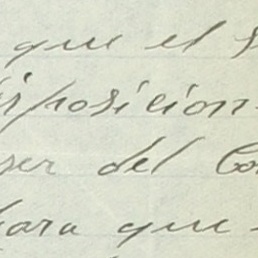 que el s
isposicion
ser del Co
para que